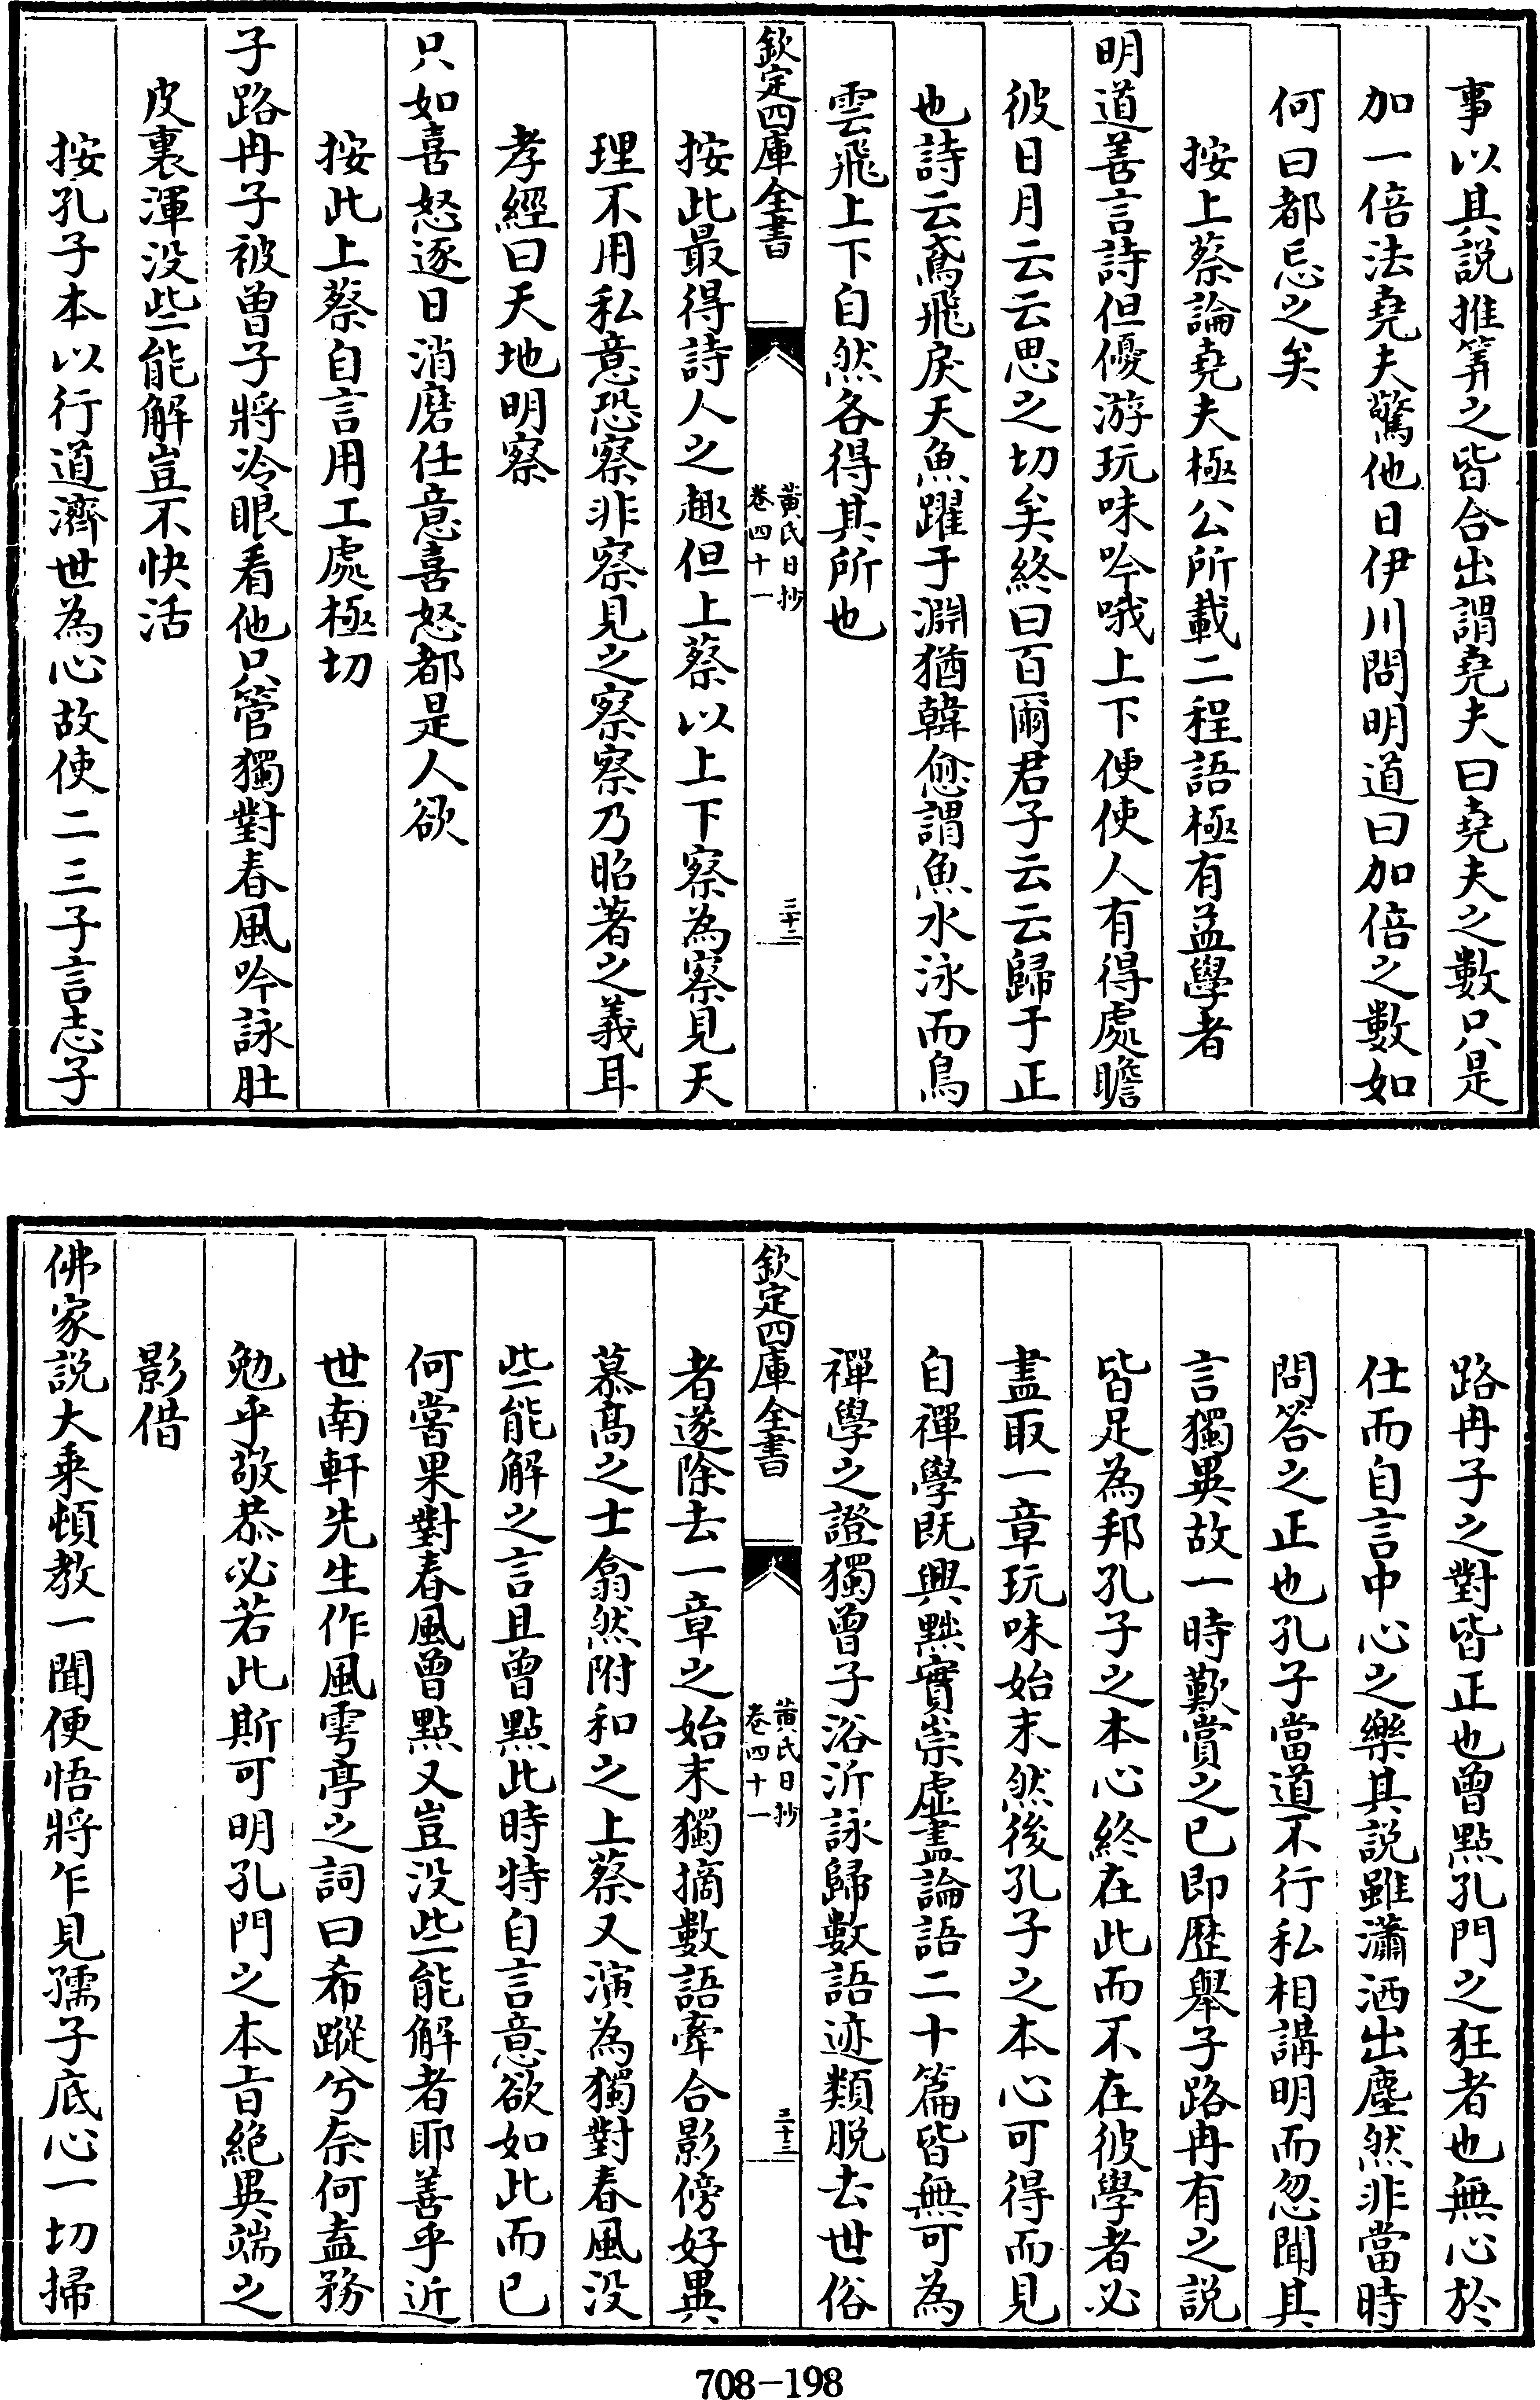 事以其説推筭之皆合出謂堯夫曰堯夫之數只是
加一倍法堯夫驚他日伊川問明道曰加倍之數如
何曰都忘之矣
按上蔡論堯夫極公所載二程語極有益學者
明道善言詩但優游玩味吟哦上下便使人有得處瞻
彼日月云云思之切矣終曰百爾君子云云歸于正
也詩云鳶飛戾天魚躍于淵猶韓愈謂魚水泳而鳥
雲飛上下自然各得其所也
欽定四庫全書
黄氏日抄
卷四十一
三十二
按此最得詩人之趣但上蔡以上下察為察見天
理不用私意恐察非察見之察察乃昭著之義耳
孝經曰天地明察
只如喜怒逐日消磨任意喜怒都是人欲
按此上蔡自言用工處極切
子路冉子被曾子將冷眼看他只管獨對春風吟詠肚
皮裏渾没些能解豈不快活
按孔子本以行道濟世為心故使二三子言志子
路冉子之對皆正也曾點孔門之狂者也無心於
仕而自言中心之樂其説雖瀟洒出塵然非當時
問答之正也孔子當道不行私相講明而忽聞其
言獨異故一時歎賞之已即歷舉子路冉有之説
皆足為邦孔子之本心終在此而不在彼學者必
盡取一章玩味始末然後孔子之本心可得而見
自禪學既興黜實崇虚盡論語二十篇皆無可為
禪學之證獨曾子浴沂詠歸數語迹類脱去世俗
欽定四庫全書
黄氏日抄
卷四十一
三十三
者遂除去一章之始末獨摘數語牽合影傍好異
慕高之士翕然附和之上蔡又演為獨對春風没
些能解之言且曾點此時特自言意欲如此而已
何嘗果對春風曾點又豈没些能解者耶善乎近
世南軒先生作風雩亭之詞曰希蹤兮奈何盍務
勉乎敬恭必若此斯可明孔門之本旨絶異端之
影借
佛家説大乗頓教一聞便悟將乍見孺子底心一切掃
708-198